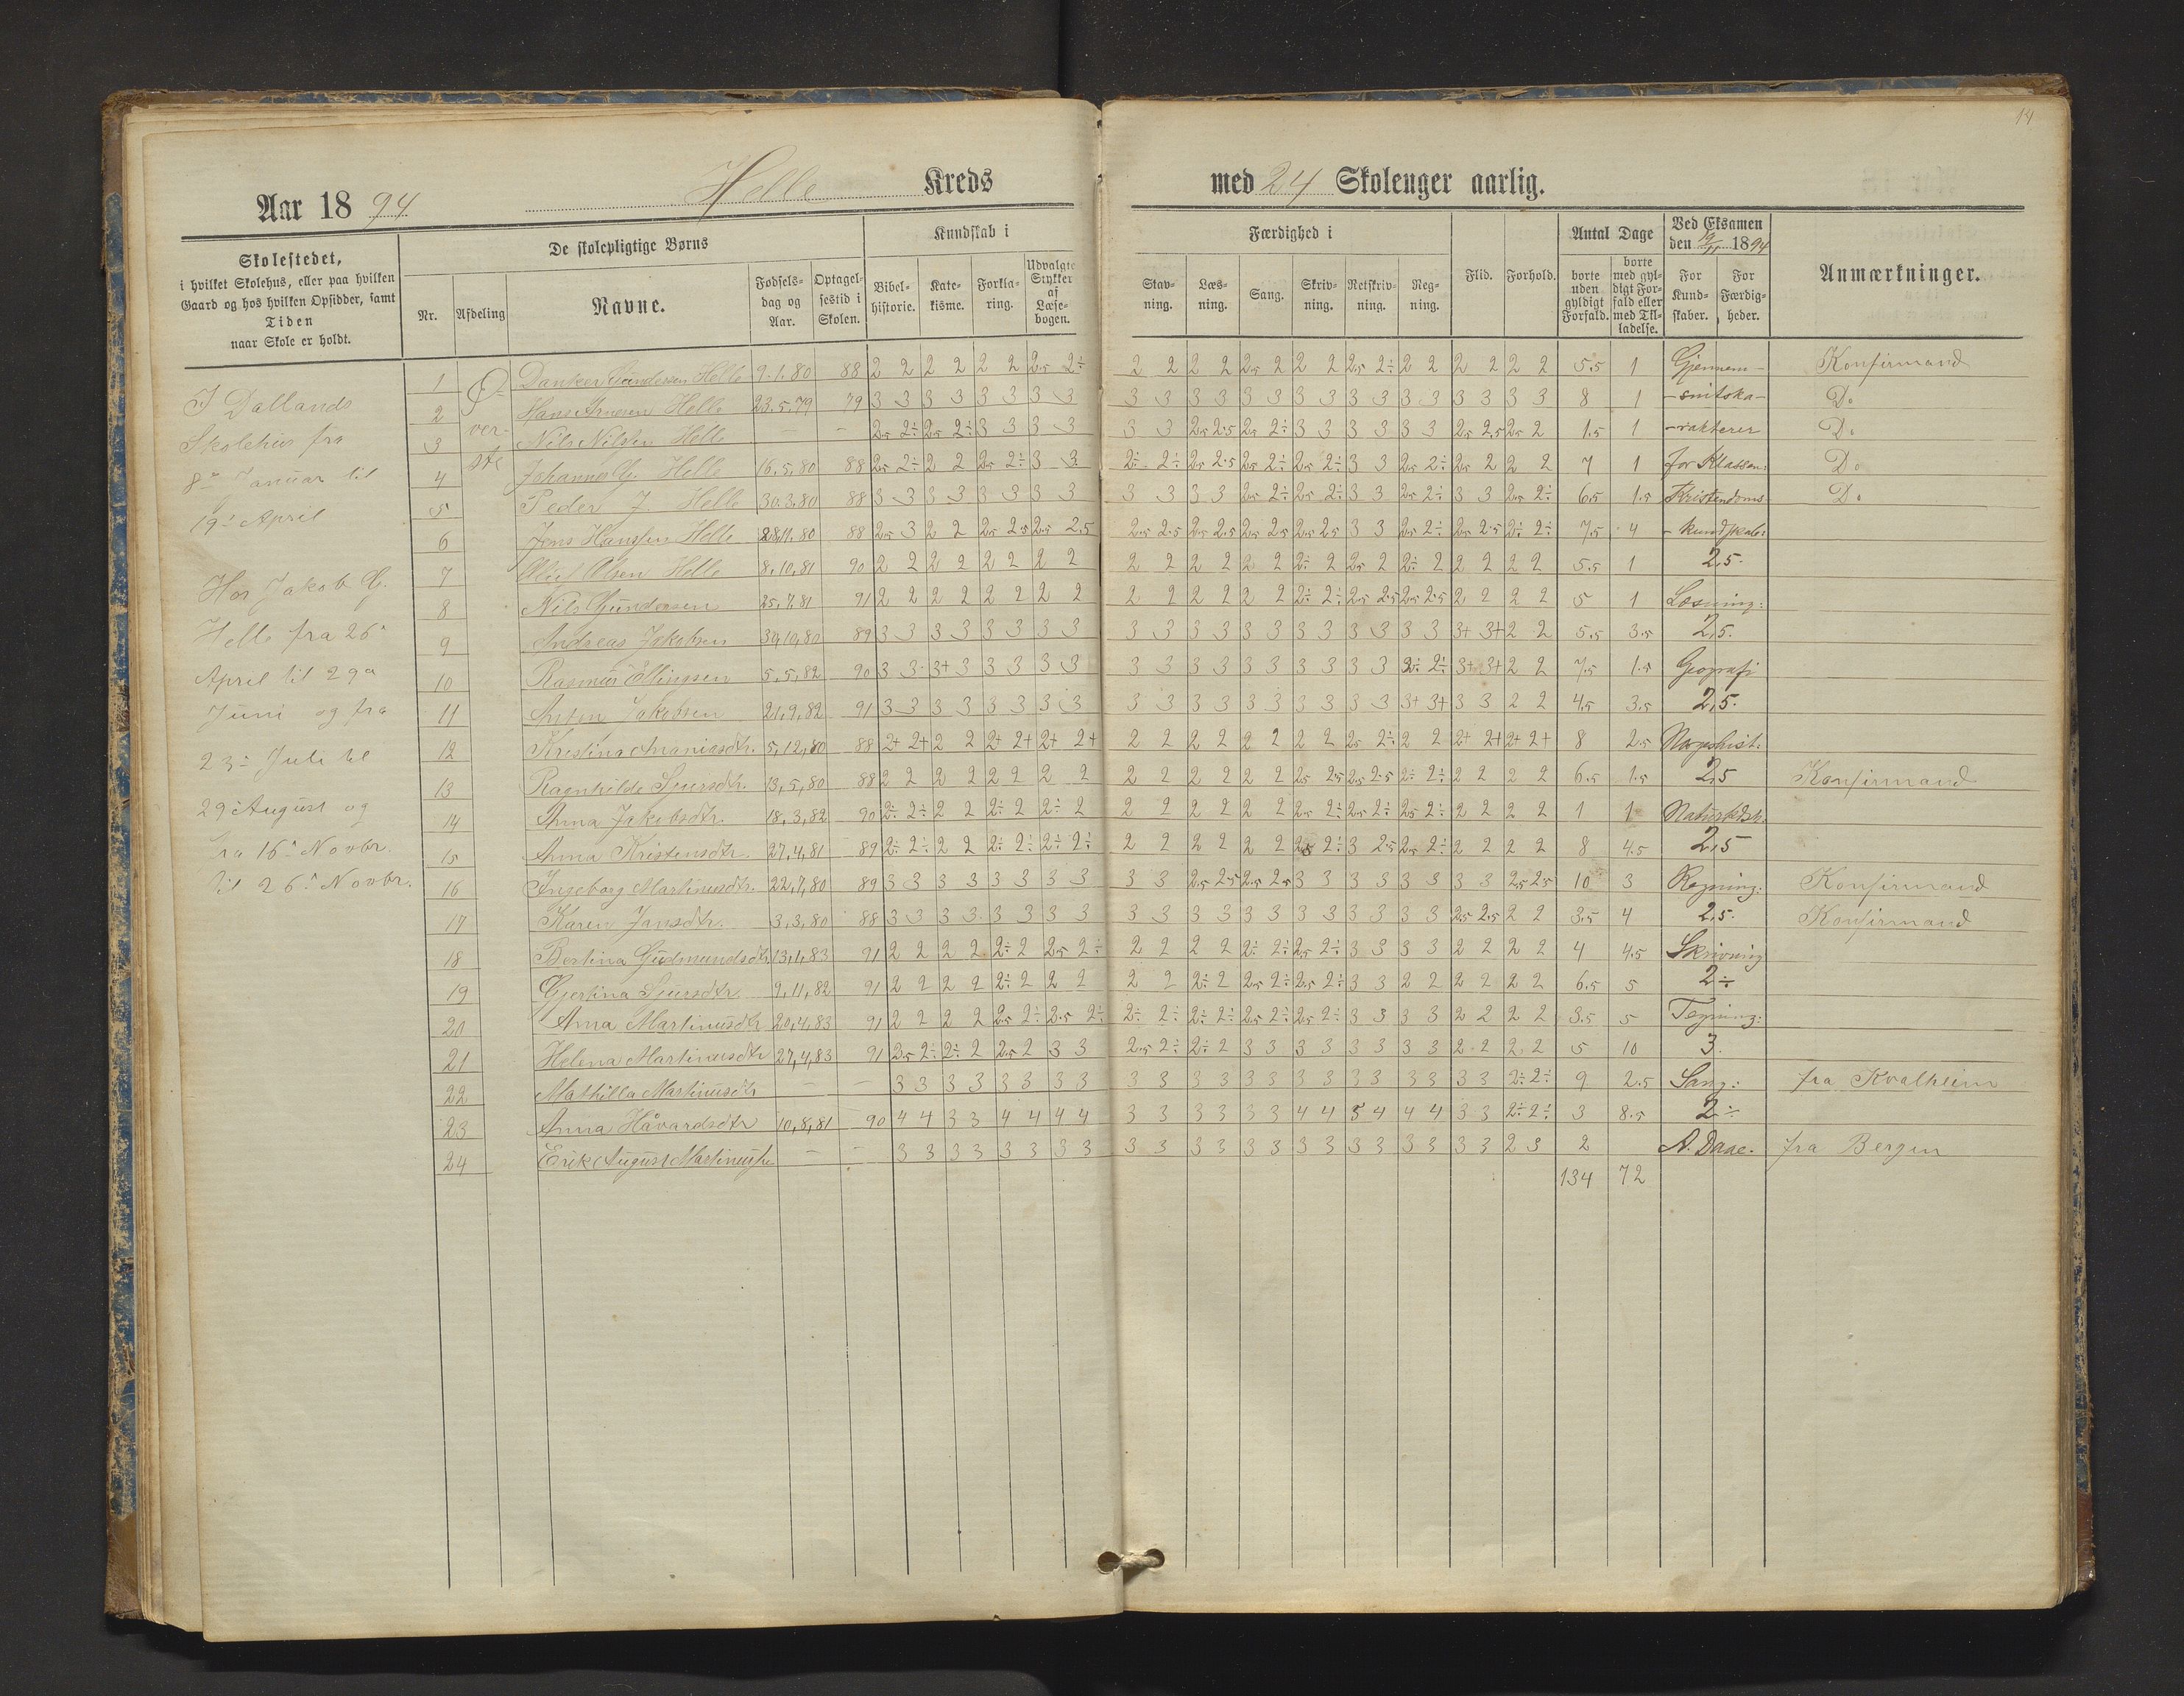 14
Aar 1894 Helle Kreds med 24 Skoleuger aarlig.
Skolestedet, i hvilket Skolehus, eller paa hvilken Gaard og hos hvilken Opsidder, samt Tiden naar Skole er holdt.
De skolepligtige Børns
Nr. Afdeling Navne. Fødselsdag og Aar. Optagelsestid i Skolen.
Kundskab i
Bibelhistorie. Katekisme. Forklaring. Udvalgte Stykker af Læsebogen.
Færdighed i
Stavning. Læsning. Sang. Skrivning. Retskrivning. Regning.
Flid. Forhold.
Antal Dage
borte uden gyldigt Forfald. borte med gyldigt Forfald eller med Tilladelse.
Ved Eksamen den 1894
For Kundskaber. For Færdigheder.
Anmærkninger.
I Dallands
Skolehus fra
8de Januar til
19de April
Hos Jakob G.
Helle fra 26de
April til 29de
Juni og fra
23de Juli til
29de August og
fra 16de Novbr.
til 26de Novbr.
Øverste
1 Danker Gundersen Helle 9.1.80 88 2 2 2 2 2 2 2.5 2÷ 2 2 2 2 2.5 2 2 2 2.5 2÷ 2 2 2 2 2 2 5.5 1 Gjennem- Konfirmand
2 Hans Arnesen Helle 23.5.79 79 3 3 3 3 3 3 3 3 3 3 3 3 3 3 3 3 3 3 3 3 3 3 3 3 8 1 -snitska- Do
3 Nils Nilsen Helle — — 2.5 2÷ 2.5 2÷ 3 3 3 3 3 3 2.5 2.5 2.5 2÷ 3 3 3 3 3 3 2.5 2.5 2.5 2 1.5 1 -rakterer Do
4 Johannes G. Helle 16.5.80 88 2.5 2÷ 2 2 2.5 2÷ 3 3 2÷ 2÷ 2.5 2.5 2.5 2÷ 2.5 2÷ 3 3 2.5 2÷ 2.5 2 2 2 7 1 for Klassen: Do
5 Peder J. Helle 30.3.80 88 3 3 3 3 3 3 3 3 3 3 3 3 2.5 2÷ 2.5 2÷ 3 3 2.5 2÷ 3 3 2.5 2÷ 6.5 1.5 Kristendoms- Do
6 Jens Hanssen Helle 28.11.80 88 2.5 3 2 2 2.5 2.5 2.5 2.5 2.5 2.5 2.5 2.5 2.5 2.5 2.5 2.5 3 3 2.5 2÷ 2.5 2.5 2÷ 2÷ 7.5 4 -kundskab:
7 Oluf Olsen Helle 8,10,81 90 2 2 2 2 2 2 2 2 2 2 2 2 2 2 2÷ 2 2.5 2 2÷ 2 2 2 2 2 5.5 1 2,5.
8 Nils Gundersen 25,7,81 91 2 2 2 2 2 2 2 2 2 2 2 2 2 2 2÷ 2÷ 2.5 2.5 2.5 2.5 2 2 2 2 5 1 Læsning:
9 Andreas Jakobsen 30,10,80 89 3 3 3 3 3 3 3 3 3 3 3 3 3 3 3 3 3 3 3 3 3+ 3+ 2 2 5.5 3.5 2,5.
10 Rasmus Ellingsen 5,5,82 90 3 3 3+ 3 3 3 3 3 3 3 3 3 3 3 3 3 3 3 2÷ 2÷ 3+ 3+ 2 2 7.5 1.5 Geografi
11 Anton Jakobsen 21,9,82 91 3 3 3 3 3 3 3 3 3 3 3 3 3 3 3 3 3 3 3+ 3+ 3 3 2 2 4.5 3.5 2,5.
12 Kristina Ananiasdtr. 5,12,80 88 2+ 2+ 2 2 2+ 2+ 2+ 2+ 2 2 2 2 2 2 2 2 2.5 2÷ 2 2 2+ 2+ 2+ 2+ 8 2.5 Norgeshist:
13 Ragnhilde Sjursdtr. 13,5,80 88 2 2 2 2 2 2 2 2 2 2 2 2 2 2 2.5 2.5 2.5 2.5 2÷ 2÷ 2 2 2 2 6.5 1.5 2,5 Konfirmand
14 Anna Jakobsdtr. 18,3,82 90 2÷ 2÷ 2 2 2÷ 2 2÷ 2 2 2 2 2 2 2 2.5 2÷ 2.5 2÷ 2.5 2÷ 2 2 2 2 1 1
15 Anna Kristensdtr. 27,4,81 89 2÷ 2÷ 2 2 2÷ 2÷ 2÷ 2÷ 2 2 2 2 2 2 2.5 2÷ 3 2.5 2.5 2÷ 2 2 2 2 8 4.5 2,5
16 Ingeborg Martinusdtr. 22,7,80 89 3 3 3 3 3 3 3 3 3 3 2.5 2.5 2.5 2.5 3 3 3 3 3 3 3 3 2.5 2.5 10 3 Regning: Konfirmand
17 Karen Jansdtr. 3,3,80 88 3 3 3 3 3 3 3 3 3 3 3 3 3 3 3 3 3 3 3 3 2.5 2.5 2 2 3.5 4 2,5. Konfirmand
18 Bertina Gudmundsdtr. 13,1,83 91 2 2 2 2 2÷ 2 2.5 2÷ 2 2 2 2 2÷ 2÷ 2.5 2÷ 3 3 3 3 2 2 2 2 4 4.5 Skrivning
19 Gjertina Sjursdtr 9,11,82 91 2 2 2 2 2÷ 2 2 2 2 2 2÷ 2 2.5 2÷ 2.5 2÷ 3 3 2 2 2 2 2 2 6.5 5 2÷
20 Anna Martinusdtr 20,4,83 91 2 2 2 2 2.5 2÷ 2.5 2÷ 2÷ 2÷ 2÷ 2÷ 2.5 2÷ 2.5 2÷ 3 3 3 3 2 2 2 2 3.5 5 Tegning:
21 Helena Martinusdtr 27,4,83 91 2.5 2÷ 2÷ 2 2.5 2 3 3 2.5 2÷ 2÷ 2 3 3 3 3 3 3 3 3 2 2 2 2 5 10 3.
22 Mathilla Martinusdtr — — 3 3 3 3 3 3 3 3 3 3 3 3 3 3 3 3 3 3 3 3 3 3 2÷ 2÷ 9 2.5 Sang: fra Kvalheim
23 Anna Håvardsdtr 10,8,81 90 4 4 3 3 4 4 4 4 3 3 3 3 3 3 4 4 5 4 4 4 3 3 2÷ 2÷ 3 8.5 2÷
24 Erik August Martinussen — — 3 3 3 3 3 3 3 3 3 3 3 3 3 3 3 3 3 3 3 3 3 3 2 3 2 A. Daae. fra Bergen
134 72